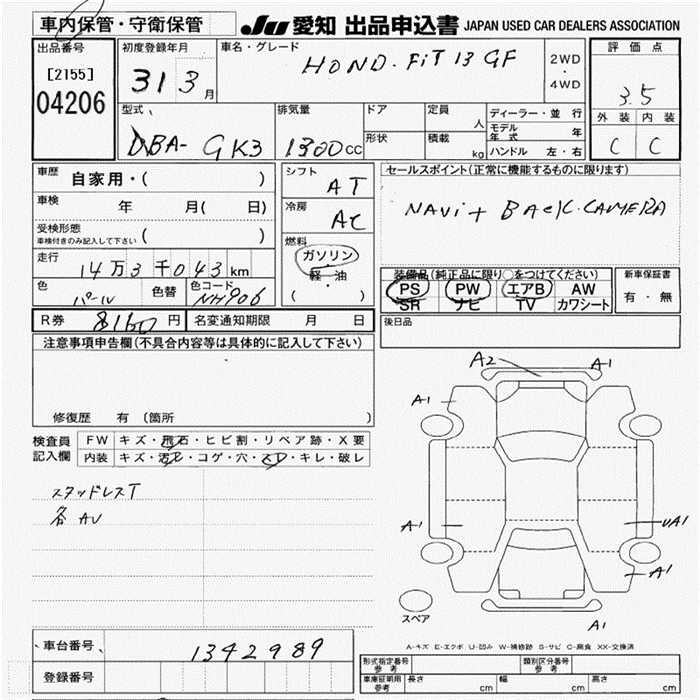 車内保管・守衛保管 JU 愛知 出品申込書 JAPAN USED CAR DEALERS ASSOCIATION
出品番号 初度登録年月 車名・グレード 評価点
[2155] 31 3月 HOND. FiT 13 GF 2WD・4WD 3.5
04206 型式 排気量 ドア 定員 人 ディーラー・並行 外装 内装
DBA- GK3 1300cc 形状 積載 kg モデル年式 年 C C
ハンドル 左・右
車歴 自家用・( ) シフト AT セールスポイント(正常に機能するものに限ります)
車検 年 月( 日) 冷房 AC NAVi + BACK.CAMERA
受検形態 ( )
車検付きのみ記入して下さい 燃料
走行 14万3千043km ガソリン・軽・油 装備品(純正品に限り○をつけてください) 新車保証書
色 パール 色替 色コード NH906 ( ) PS PW エアB AW 有・無
SR ナビ TV カワシート
R券 8160円 名変通知期限 月 日 後日品
注意事項申告欄(不具合内容等は具体的に記入して下さい)
A2 A1
A1
修復歴 有 (箇所 )
検査員記入欄 FW キズ・飛石・ヒビ割・リペア跡・X要
内装 キズ・汚レ・コゲ・穴・スレ・キレ・破レ
スタッドレスT
各 AU
A1 UA1
A1
スペア
A1
A-キズ E-エクボ U-凹み W-補修跡 S-サビ C-腐食 XX-交換済
車台番号 1342989
登録番号
形式指定番号 参考 類別区分番号 参考
車庫証明用 参考 長さ cm 幅 cm 高さ cm